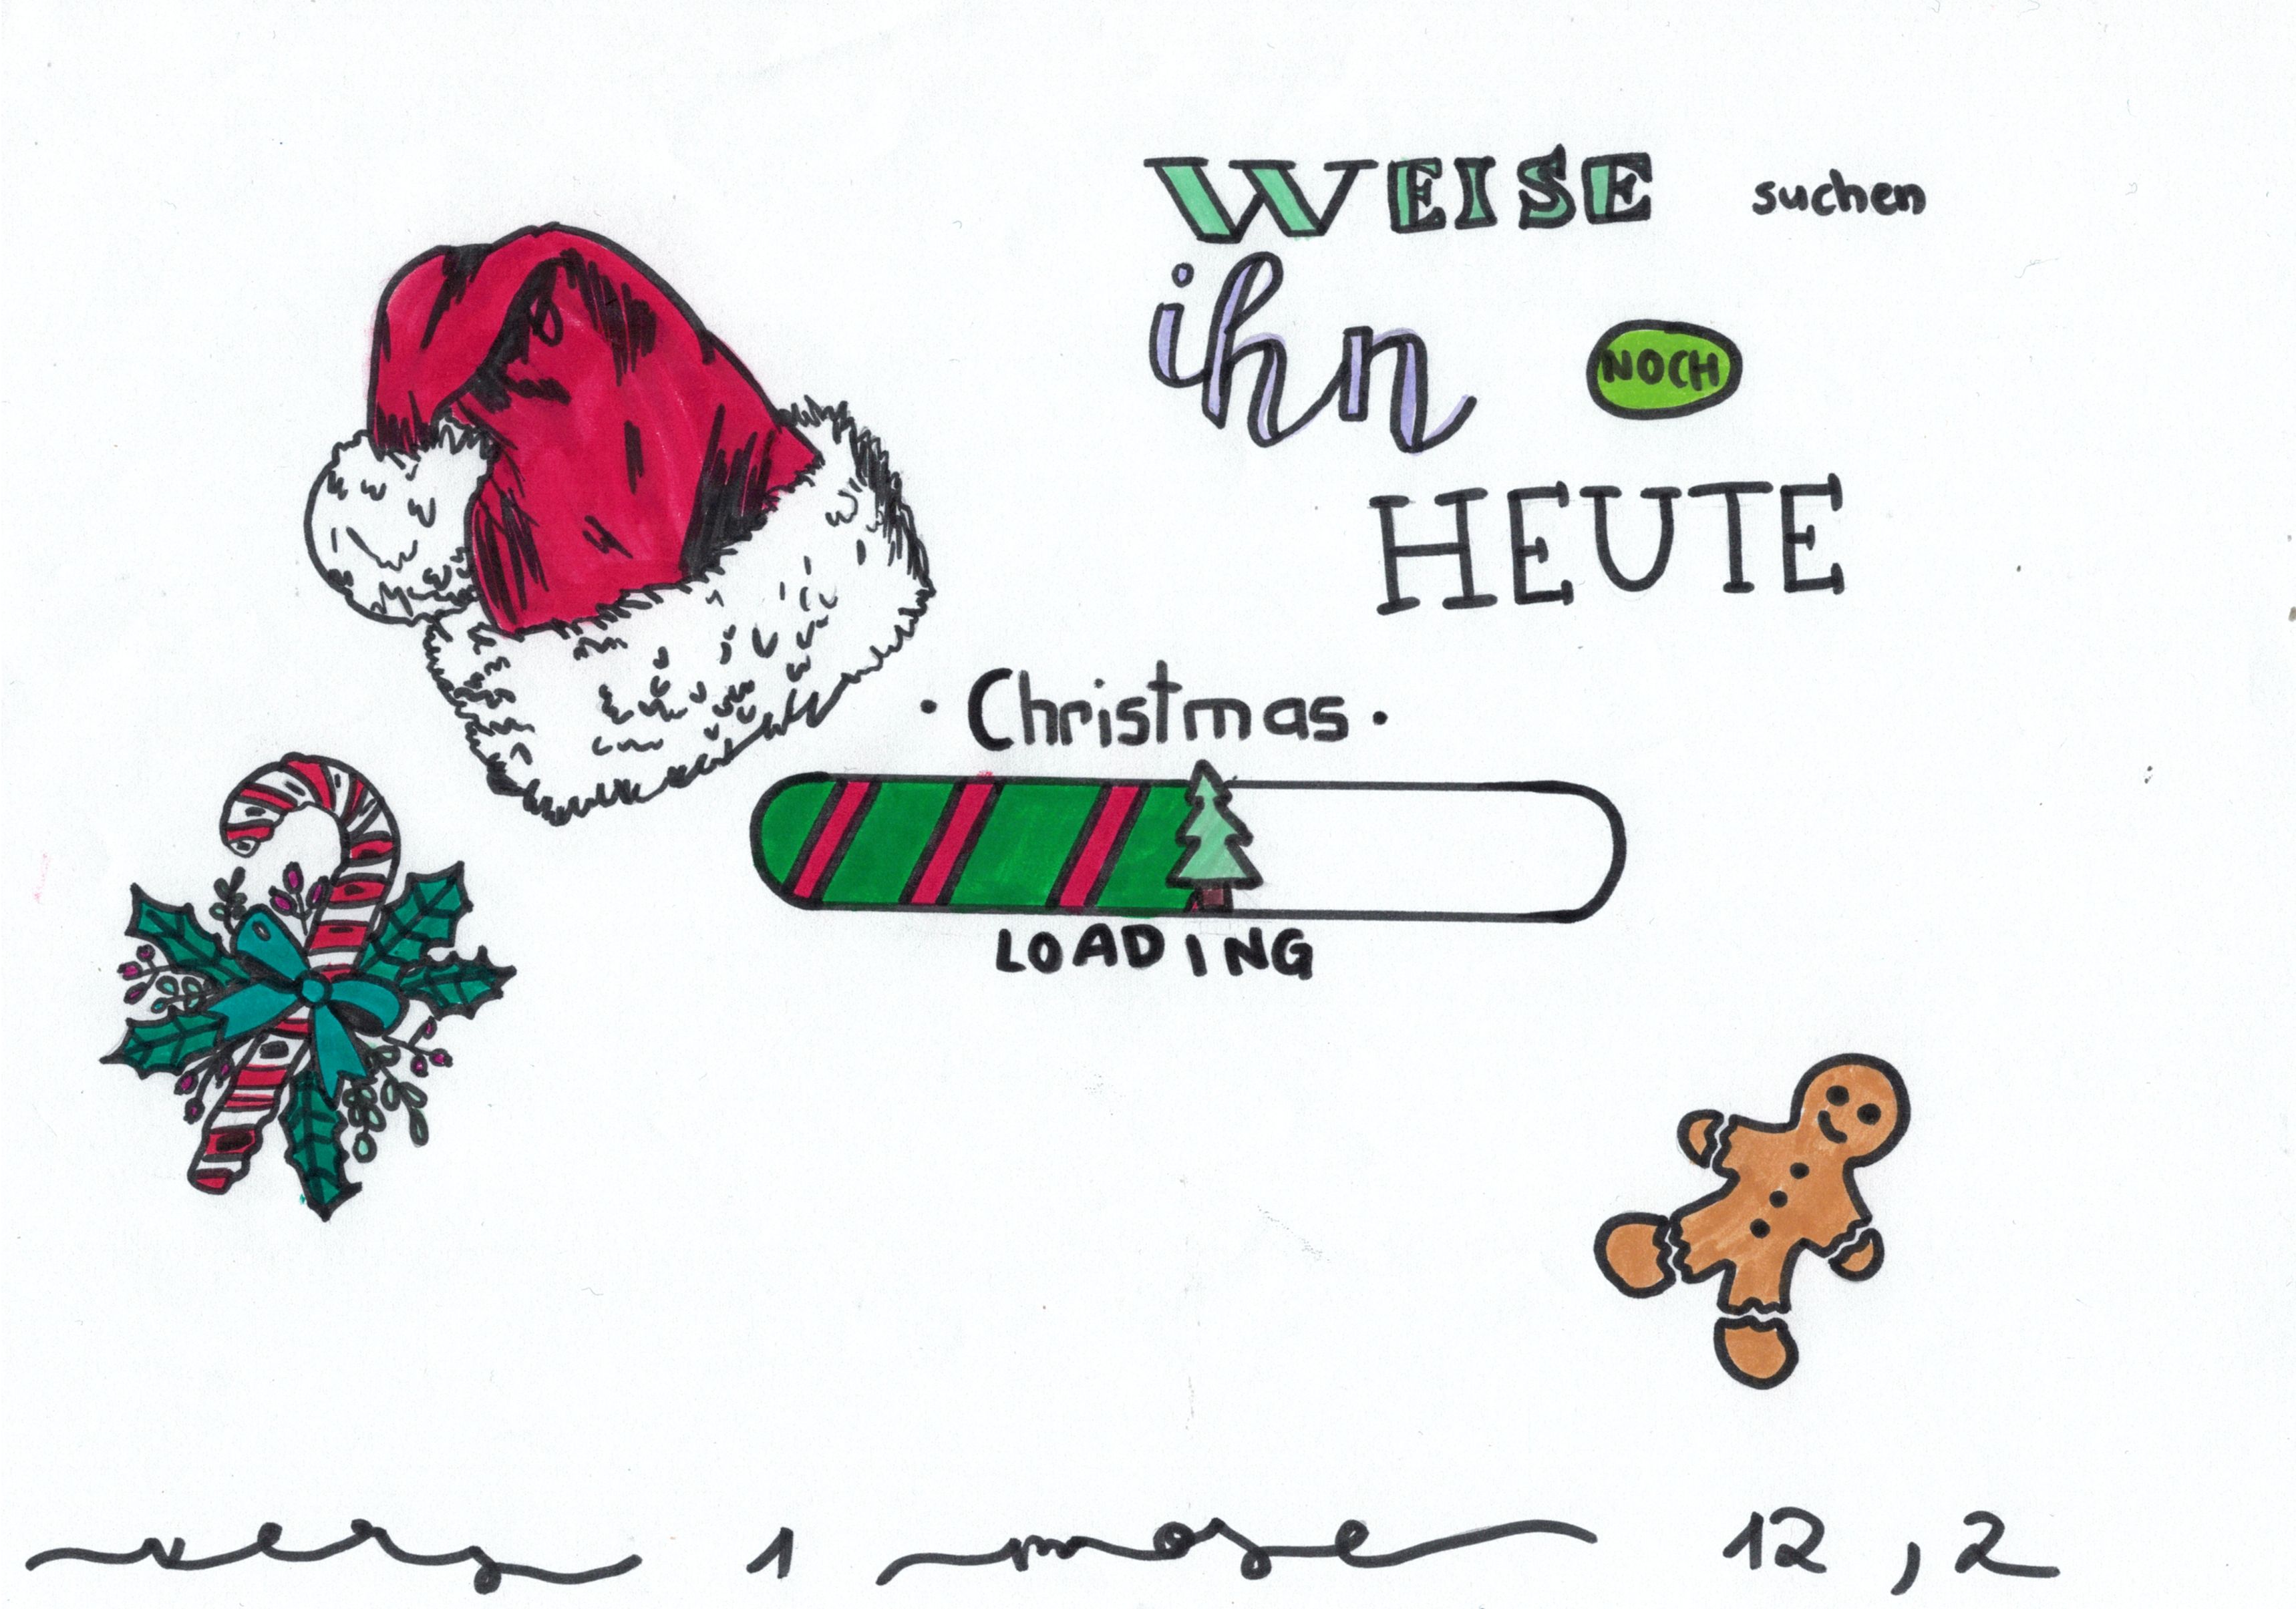 WEISE suchen
ihn NOCH
HEUTE
• Christmas •
LOADING
vers 1 mose 12,2